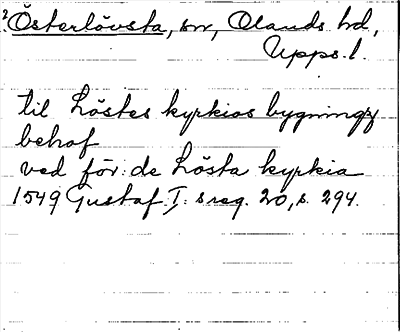 ? Österlövsta, sn, Olands hd,
Upps. l.
til Löstes kyrkios bygningz
behof
ved för: de Lösta kyrkia
1549 Gustaf I: s reg. 20, s. 294.